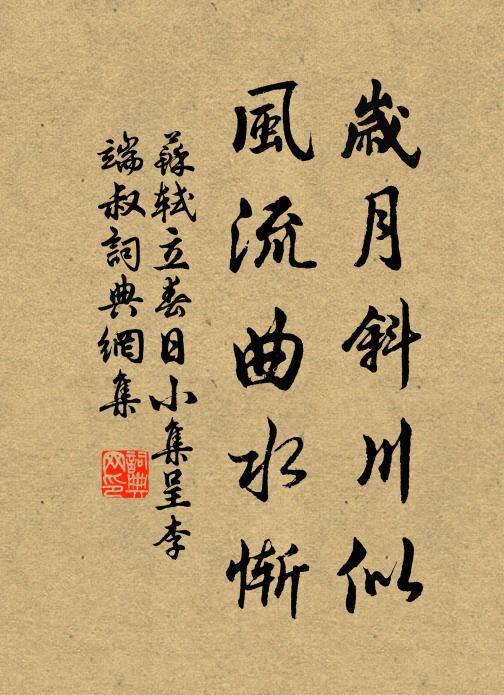 歲月斜川似
風流曲水慚
蘇軾立春日小集呈李
端叔詞典網集
詞典
网印